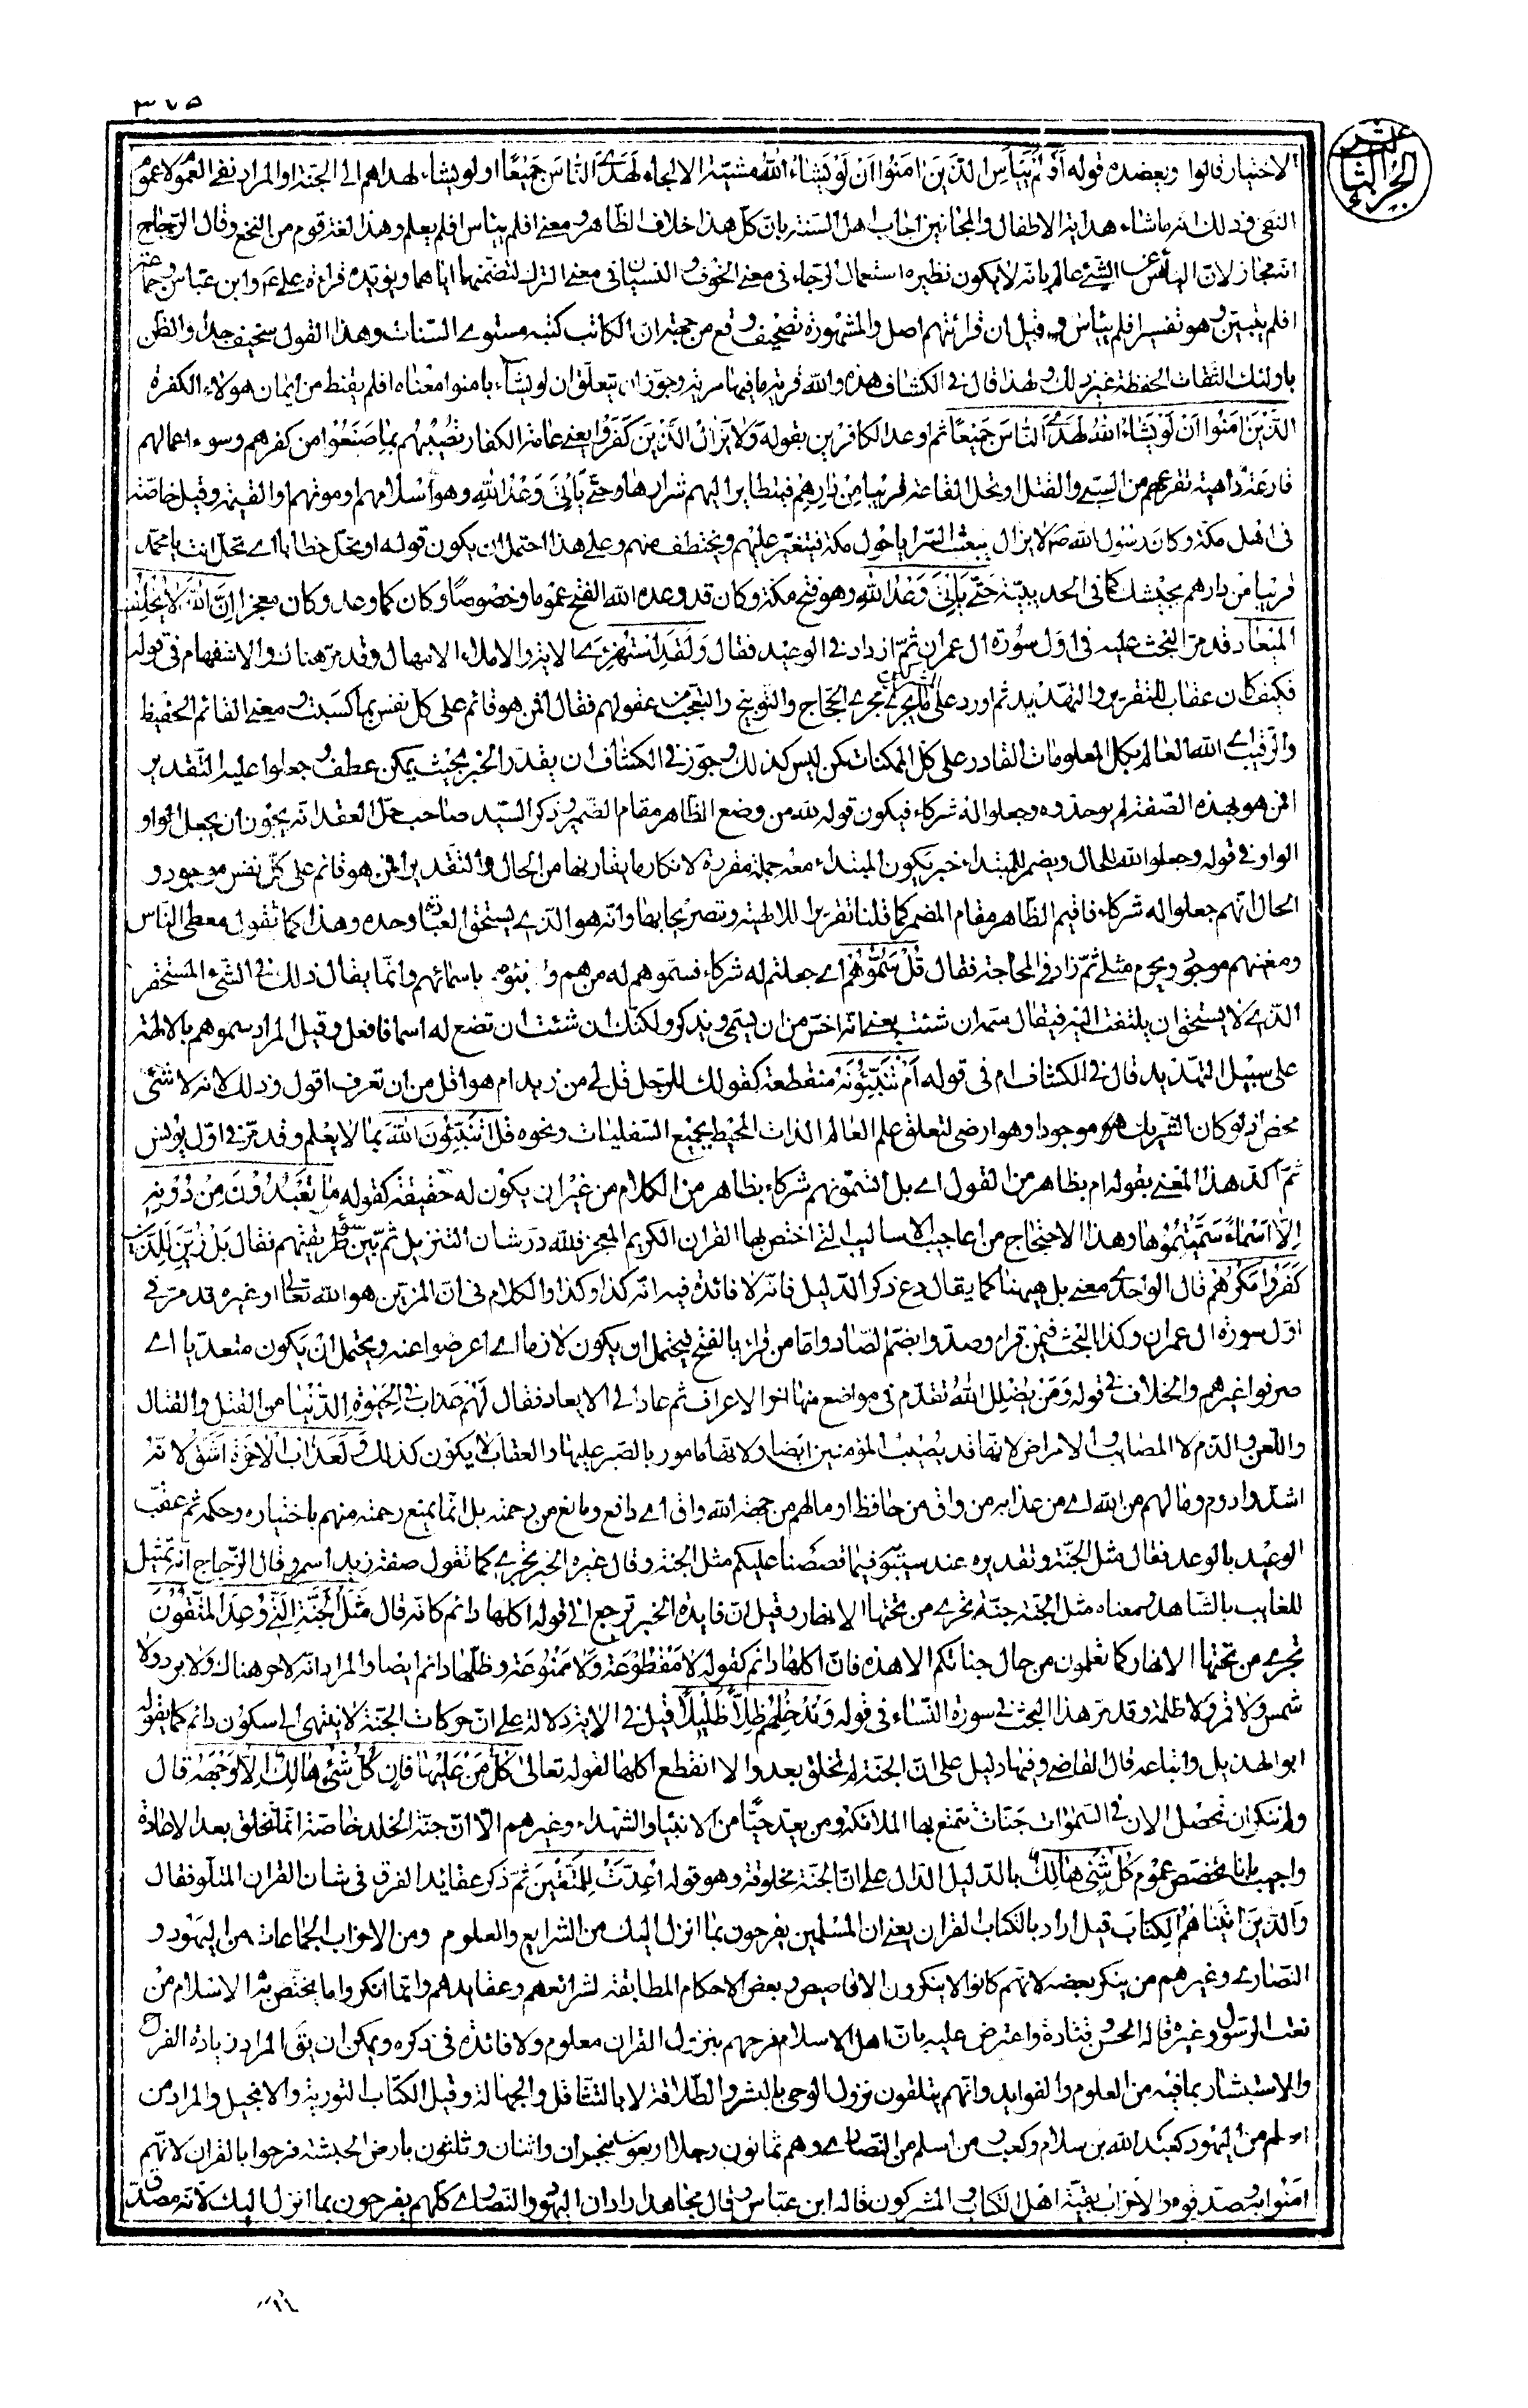 ٣٧٥
الجزء الثالث عشر
الاختيار قالوا ويعضده قوله أَوَلَمْ يَيْأَسِ الَّذِينَ امَنُوا اَنْ لَوْ يَشَاءُ اللَّهُ مشيّة الالجاء لَهَدَى النَّاسَ جَمِيعًا او لو يشاء لهداهم الى الجنة او المراد نفى العموم لا عموم
النفى وذلك انه ما شاء هداية الاطفال والمجانين اجاب اهل السنة بان كل هذا خلاف الظاهر ومعنى افلم ييأس افلم يعلم وهذا لغة قوم من النخع وقال الزجاج
انه مجاز لان اليائس عن الشئ عالم بانه لا يكون نظيره استعمال الرجاء فى معنى الخوف والنسيان فى معنى الترك لتضمنهما اياهما ويؤيده قراءة على ع وابن عباس وجماعة
افلم يتبين وهو تفسير افلم ييأس وقيل ان قرائتهم اصل والمشهورة تصحيف وقع من جهة ان الكاتب كتبه مستوى السنات وهذا القول سخيف جدا والظن
باولئك الثقات الحفظة غير ذلك ولهذا قال فى الكشاف هذه والله فرية ما فيها مرية وجوز ان يتعلق ان لو يشاء بامنوا معناه افلم يقنط من ايمان هولاء الكفرة
الَّذِينَ امَنُوا اَنْ لَوْ يَشَاءُ اللَّهُ لَهَدَى النَّاسَ جَمِيعًا ثم اوعد الكافرين بقوله وَلَا يَزَالُ الَّذِينَ كَفَرُوا يعنى عامة الكفار تُصِيبُهُمْ بِمَا صَنَعُوا من كفرهم وسوء اعمالهم
قارعة داهية تقرعهم من السبى والقتل او تحل القاعة قريبا مِنْ دَارِهِمْ فيتطاير اليهم شرارها حَتَّى يَأْتِىَ وَعْدُ اللَّهِ وهو اسلامهم او موتهم او القيمة وقيل خاصة
فى اهل مكة وكان رسول الله ص لا يزال يبعث السرايا حول مكة فتغير عليهم ويختطف منهم وعلى هذا احتمل ان يكون قوله او تحل خطابا اى تحل انت يا محمد
قريبا من دارهم بجيشك كما فى الحديبية حَتَّى يَأْتِىَ وَعْدُ اللَّهِ وهو فتح مكة وكان قد وعده الله الفتح عموما وخصوصا وكان كما وعد وكان معجزا اِنَّ اللَّهَ لَا يُخْلِفُ
الْمِيعَادَ قد مر البحث عليه فى اول سورة ال عمران ثم ازداد فى الوعيد فقال وَلَقَدِ اسْتُهْزِئَ الاية والاملاء الامهال وقد مر هناك والاستفهام فى قوله
فكيف كان عقاب للتقرير والتهديد ثم اورد على المشركين ما يجرى مجرى الحجاج والتوبيخ والتعجب من عقولهم فقال افمن هو قائم على كل نفس بما كسبت ومعنى القائم الحفيظ
والرقيب اى الله العالم بكل المعلومات القادر على كل الممكنات كمن ليس كذلك وجوز فى الكشاف ان يقدر الخبر بحيث يمكن عطف وجعلوا عليه التقدير
افمن هو بهذه الصفة لم يوحدوه وجعلوا له شركاء فيكون قوله لله من وضع الظاهر مقام الضمير وذكر السيد صاحب حل العقد انه يجوز ان يجعل الواو
الواو فى قوله وجعلوا الله للحال ويضمر للمبتداء خبر يكون المبتداء معه جملة مقررة لامكان ما يقارنها من الحال والتقدير افمن هو قائم على كل نفس موجود و
الحال انهم جعلوا له شركاء فاقيم الظاهر مقام المضمر كما قلنا تقريرا للالهية وتصريحا بها وانه هو الذى يستحق العبادة وحده وهذا كما تقول معطى الناس
ومغنيهم موجود ويحرم مثلى ثم زاد فى المحاجة فقال قُلْ سَمُّوهُمْ اى جعلتم له شركاء فسموهم له من هم ونبئوه باسمائهم وانما يقال ذلك فى الشئ المستحقر
الذى لا يستحق ان يلتفت اليه فيقال سمه ان شئت يعنى انه اخس من ان يسمى ويذكر ولكنك ان شئت ان تضع له اسما فافعل وقيل المراد سموهم بالالهة
على سبيل التهديد قال فى الكشاف ام فى قوله اَمْ تُنَبِّئُونَهُ منقطعة كقولك للرجل قل لى من زيد ام هو اقل من ان تعرف اقول وذلك لانه لا شئ
محض اذ لو كان الشريك هو موجودا وهو ارضى لتعلق علم العالم الذات المحيط بجميع السفليات ونحوه قل اَتُنَبِّئُونَ اللَّهَ بما لا يعلم وقد مر فى اول يونس
ثم اكد هذا المعنى بقوله ام بظاهر من القول اى بل اتسمونهم شركاء بظاهر من الكلام من غير ان يكون له حقيقة كقوله مَا تَعْبُدُونَ مِنْ دُونِهِ
اِلَّا اَسْمَاءً سَمَّيْتُمُوهَا وهذا الاحتجاج من اعاجيب الاساليب التى اختص بها القران الكريم المعجز فلله در شان التنزيل ثم بين سوء طريقتهم فقال بَلْ زُيِّنَ لِلَّذِينَ
كَفَرُوا مَكْرُهُمْ قال الواحدى معنى بل هيهنا كما يقال دع ذكر الدليل فانه لا فائدة فيه انه كذا وكذا والكلام فى ان المزين هو الله تعالى او غيره قد مر فى
اول سورة ال عمران وكذا البحث فيمن قراء وصدوا بضم الصاد واما من قراء بالفتح فيحتمل ان يكون لازما اى اعرضوا عنه ويحتمل ان يكون متعديا اى
صرفوا غيرهم والخلاف فى قوله وَمَنْ يُضْلِلِ اللَّهُ تقدم فى مواضع منها اخر الاعراف ثم عاد الى الايعاد فقال لَهُمْ عَذَابٌ فِى الْحَيٰوةِ الدُّنْيَا من القتل والقتال
واللعن والذم لا المصائب والامراض لانها قد يصيب المؤمنين ايضا ولانها مامور بالصبر عليها والعقاب لا يكون كذلك وَلَعَذَابُ الْاٰخِرَةِ اَشَقُّ لانه
اشد وادوم وما لهم من الله اى من عذابه من واق من حافظ او مالهم من جهة الله واق اى دافع ومانع من رحمته بل انما يمنع رحمته منهم باختياره وحكمه ثم عقب
الوعيد بالوعد فقال مثل الجنة وتقديره عند سيبويه فيما قصصنا عليكم مثل الجنة وقال غيره الخبر تجرى كما تقول صفة زيد اسمر وقال الزجاج انه تمثيل
للغايب بالشاهد ومعناه مثل الجنة جنة تجرى من تحتها الانهار وقيل ان فايدة الخبر ترجع الى قوله اكلها دائم كانه قال مَثَلُ الْجَنَّةِ الَّتِى وُعِدَ الْمُتَّقُونَ
تجرى من تحتها الانهار كما تعلمون من حال جناتكم الا هذه فان اكلها دائم كقوله لَا مَقْطُوعَةٍ وَلَا مَمْنُوعَةٍ وظلها دائم ايضا والمراد انه لا حر هناك ولا برد ولا
شمس ولا قمر ولا ظلمة وقد مر هذا البحث فى سورة النساء فى قوله وَنُدْخِلُهُمْ ظِلًّا ظَلِيلًا قيل فى الاية دلالة على ان حركات الجنة لا ينتهى الى سكون دائم كما يقوله
ابو الهذيل واتباعه قال القاضى وفيها دليل على ان الجنة لم تخلق بعد والا انقطع اكلها لقوله تعالى كُلُّ مَنْ عَلَيْهَا فَانٍ كُلُّ شَىْءٍ هَالِكٌ اِلَّا وَجْهَهُ قال
ولم ننكر ان تحصل الان فى السموات جنات تتمتع بها الملائكة ومن يعد حيا من الانبياء والشهداء وغيرهم الا ان جنة الخلد خاصة انما تخلق بعد الاعادة
واجيب بانا نخصص عموم كُلُّ شَىْءٍ هَالِكٌ بالدليل الدال على ان الجنة مخلوقة وهو قوله اُعِدَّتْ لِلْمُتَّقِينَ ثم ذكر عقائد الفرق فى شان القران المتلو فقال
وَالَّذِينَ اٰتَيْنَاهُمُ الْكِتَابَ قيل اراد بالكتاب القران يعنى ان المسلمين يفرحون بما انزل اليك من الشرايع والعلوم ومن الاحزاب الجماعات من اليهود و
النصارى وغيرهم من ينكر بعضه لانهم كانوا لا ينكرون الاقاصيص وبعض الاحكام المطابقة لشرائعهم وعقايدهم وانما انكروا ما يختص به الاسلام من
نعت الرسول وغيره قاله الحسن وقتادة واعترض عليه بان اهل الاسلام فرحهم بنزول القران معلوم ولا فائدة فى ذكره ويمكن ان يق المراد زيادة الفرح
والاستبشار بما فيه من العلوم والفوايد وانهم يتلقون نزول الوحى بالبشر والطلاقة لا بالتثاقل والجهالة وقيل الكتاب التورية والانجيل والمراد من
اسلم من اليهود كعبد الله بن سلام وكعب ومن اسلم من النصارى وهم ثمانون رجلا اربعون بنجران واثنان وثلثون بارض الحبشة فرحوا بالقران لانهم
امنوا به وصدقوه والاحزاب بقية اهل الكتاب والمشركون قاله ابن عباس وقال مجاهد اراد ان اليهود والنصارى كلهم يفرحون بما انزل اليك لانه مصدق